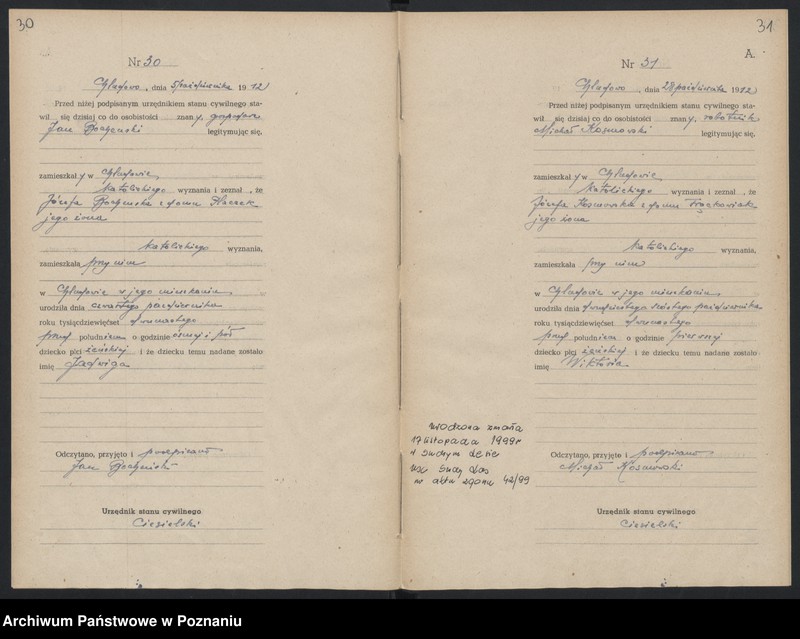 30
Nr 30
, dnia 5 października 1912
Przed niżej podpisanym urzędnikiem stanu cywilnego sta-
wił się dzisiaj co do osobistości znany, gospodarz
Jan legitymując się,
zamieszkały w
katolickiego wyznania i zeznał, że
Józefa z domu
jego żona
katolickiego wyznania,
zamieszkała przy nim
w w jego mieszkaniu
urodziła dnia czwartego października
roku tysiącdziewięćset dwunastego
przed południem o godzinie ósmej i pół
dziecko płci żeńskiej i że dziecku temu nadane zostało
imię Jadwiga
Odczytano, przyjęto i podpisano
Jan
Urzędnik stanu cywilnego
Ciesielski
31
A.
Nr 31
, dnia 28 października 1912
Przed niżej podpisanym urzędnikiem stanu cywilnego sta-
wił się dzisiaj co do osobistości znany, robotnik
Michał Kosmowski legitymując się,
zamieszkały w
katolickiego wyznania i zeznał, że
Józefa Kosmowska z domu Frąckowiak
jego żona
katolickiego wyznania,
zamieszkała przy nim
w w jego mieszkaniu
urodziła dnia dwudziestego szóstego października
roku tysiącdziewięćset dwunastego
przed południem o godzinie pierwszej
dziecko płci żeńskiej i że dziecku temu nadane zostało
imię Wiktoria
urodzona zmarła
17 listopada 1999 r
w Suchym Lesie
USC Suchy Las
nr aktu zgonu 42/99
Odczytano, przyjęto i podpisano
Michał Kosmowski
Urzędnik stanu cywilnego
Ciesielski
Archiwum Państwowe w Poznaniu